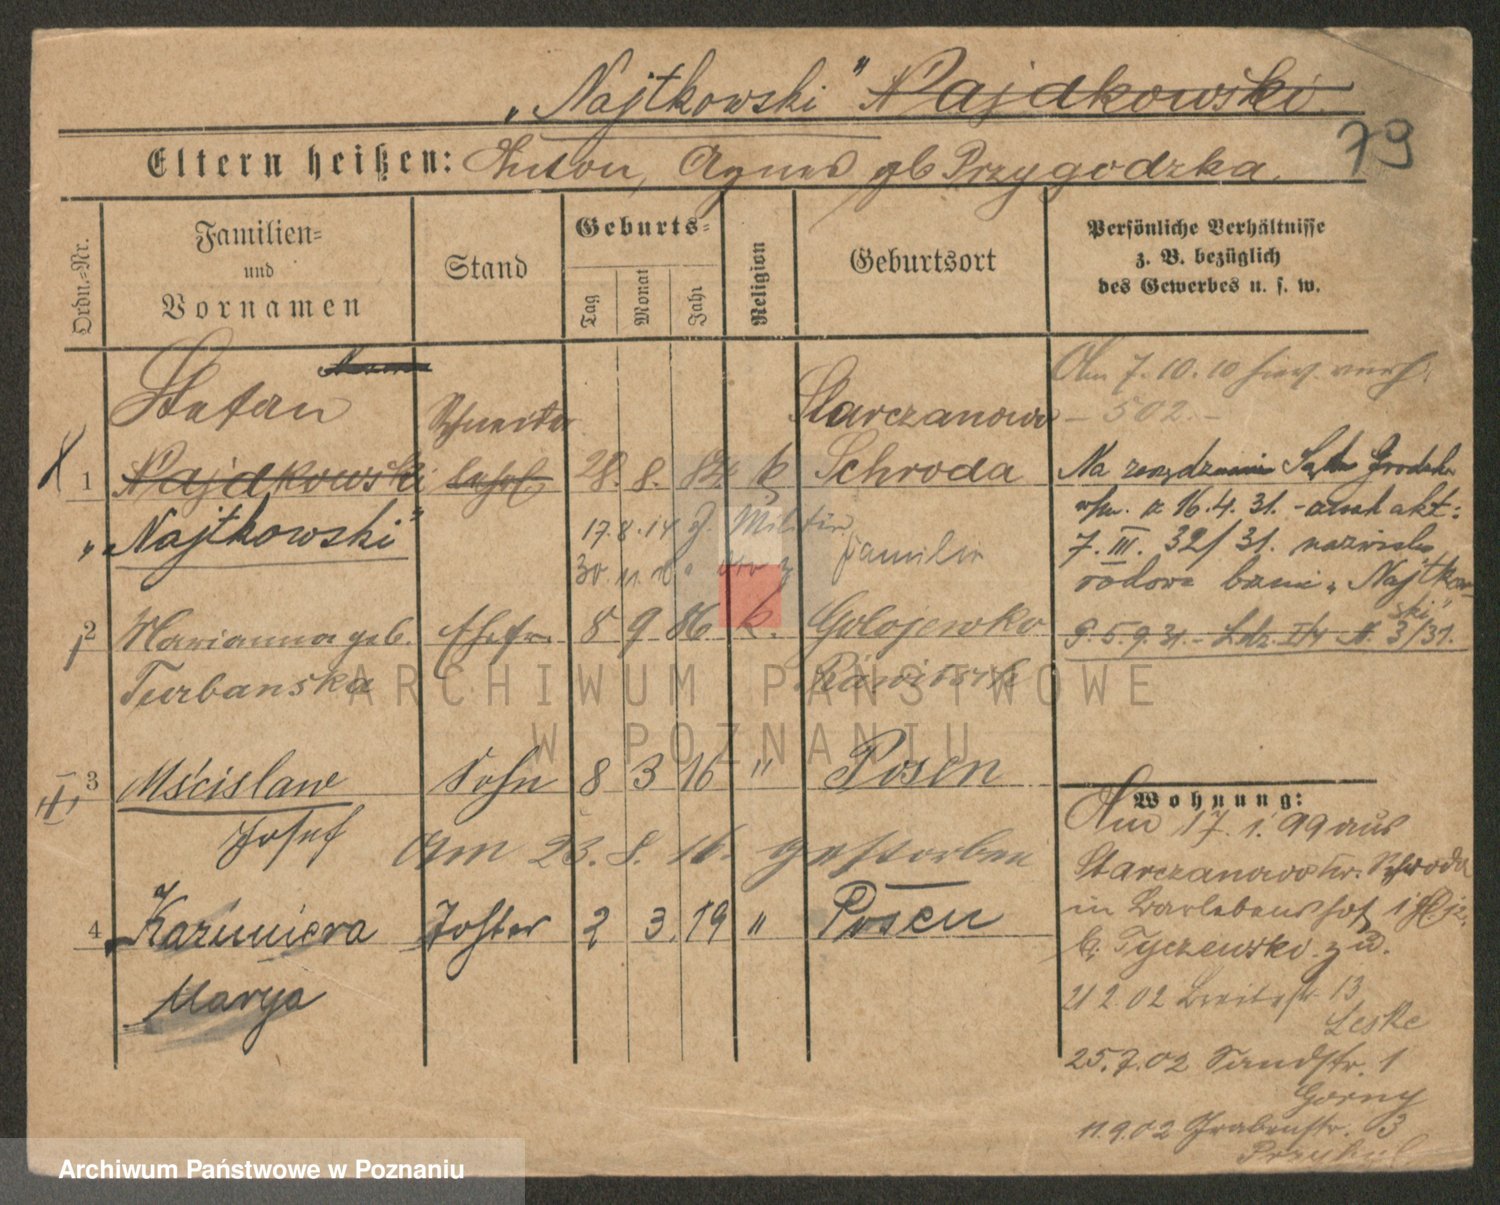 „Najtkowski” Najdkowski
79
Eltern heißen: Anton, Agnes gb Przygodzka.
Ordn.-Nr.
Familien-
und
Vornamen
Stand
Geburts-
Tag
Monat
Jahr
Religion
Geburtsort
Persönliche Verhältnisse
z. B. bezüglich
des Gewerbes u. s. w.
Stefan
Schneider
Starczanowo
Am 7.10.10
- 502 -
1 Najdkowski 28. 8. 84 k Schroda
„Najtkowski”
Na Grodzk.
16.4.31. akt:
7. III. 32/31. nazwisko
brzmi „Najtkow-
ski”
17.8.14 z. Militär
30.11.18 Familie
2 Marianna geb. Ehefr. 8 9 86 k. Golojewko
Turbanska
5.9.31. - 3/31.
3 Mścislaw Sohn 8 3 16 " Posen
Josef
Am 23. 8. 16. gestorben
4 Kazimiera Tochter 2 3. 19 " Posen
Marya
Wohnung:
Am 17.1.99 aus
Starczanowo Kr. Schroda
in
b. Tyczewski zu.
21 2 02 Breitestr 13
Leske
25.7.02 Sandstr. 1
Gorny
11.9.02 Grabenstr. 3
ARCHIWUM PAŃSTWOWE
W POZNANIU
Archiwum Państwowe w Poznaniu